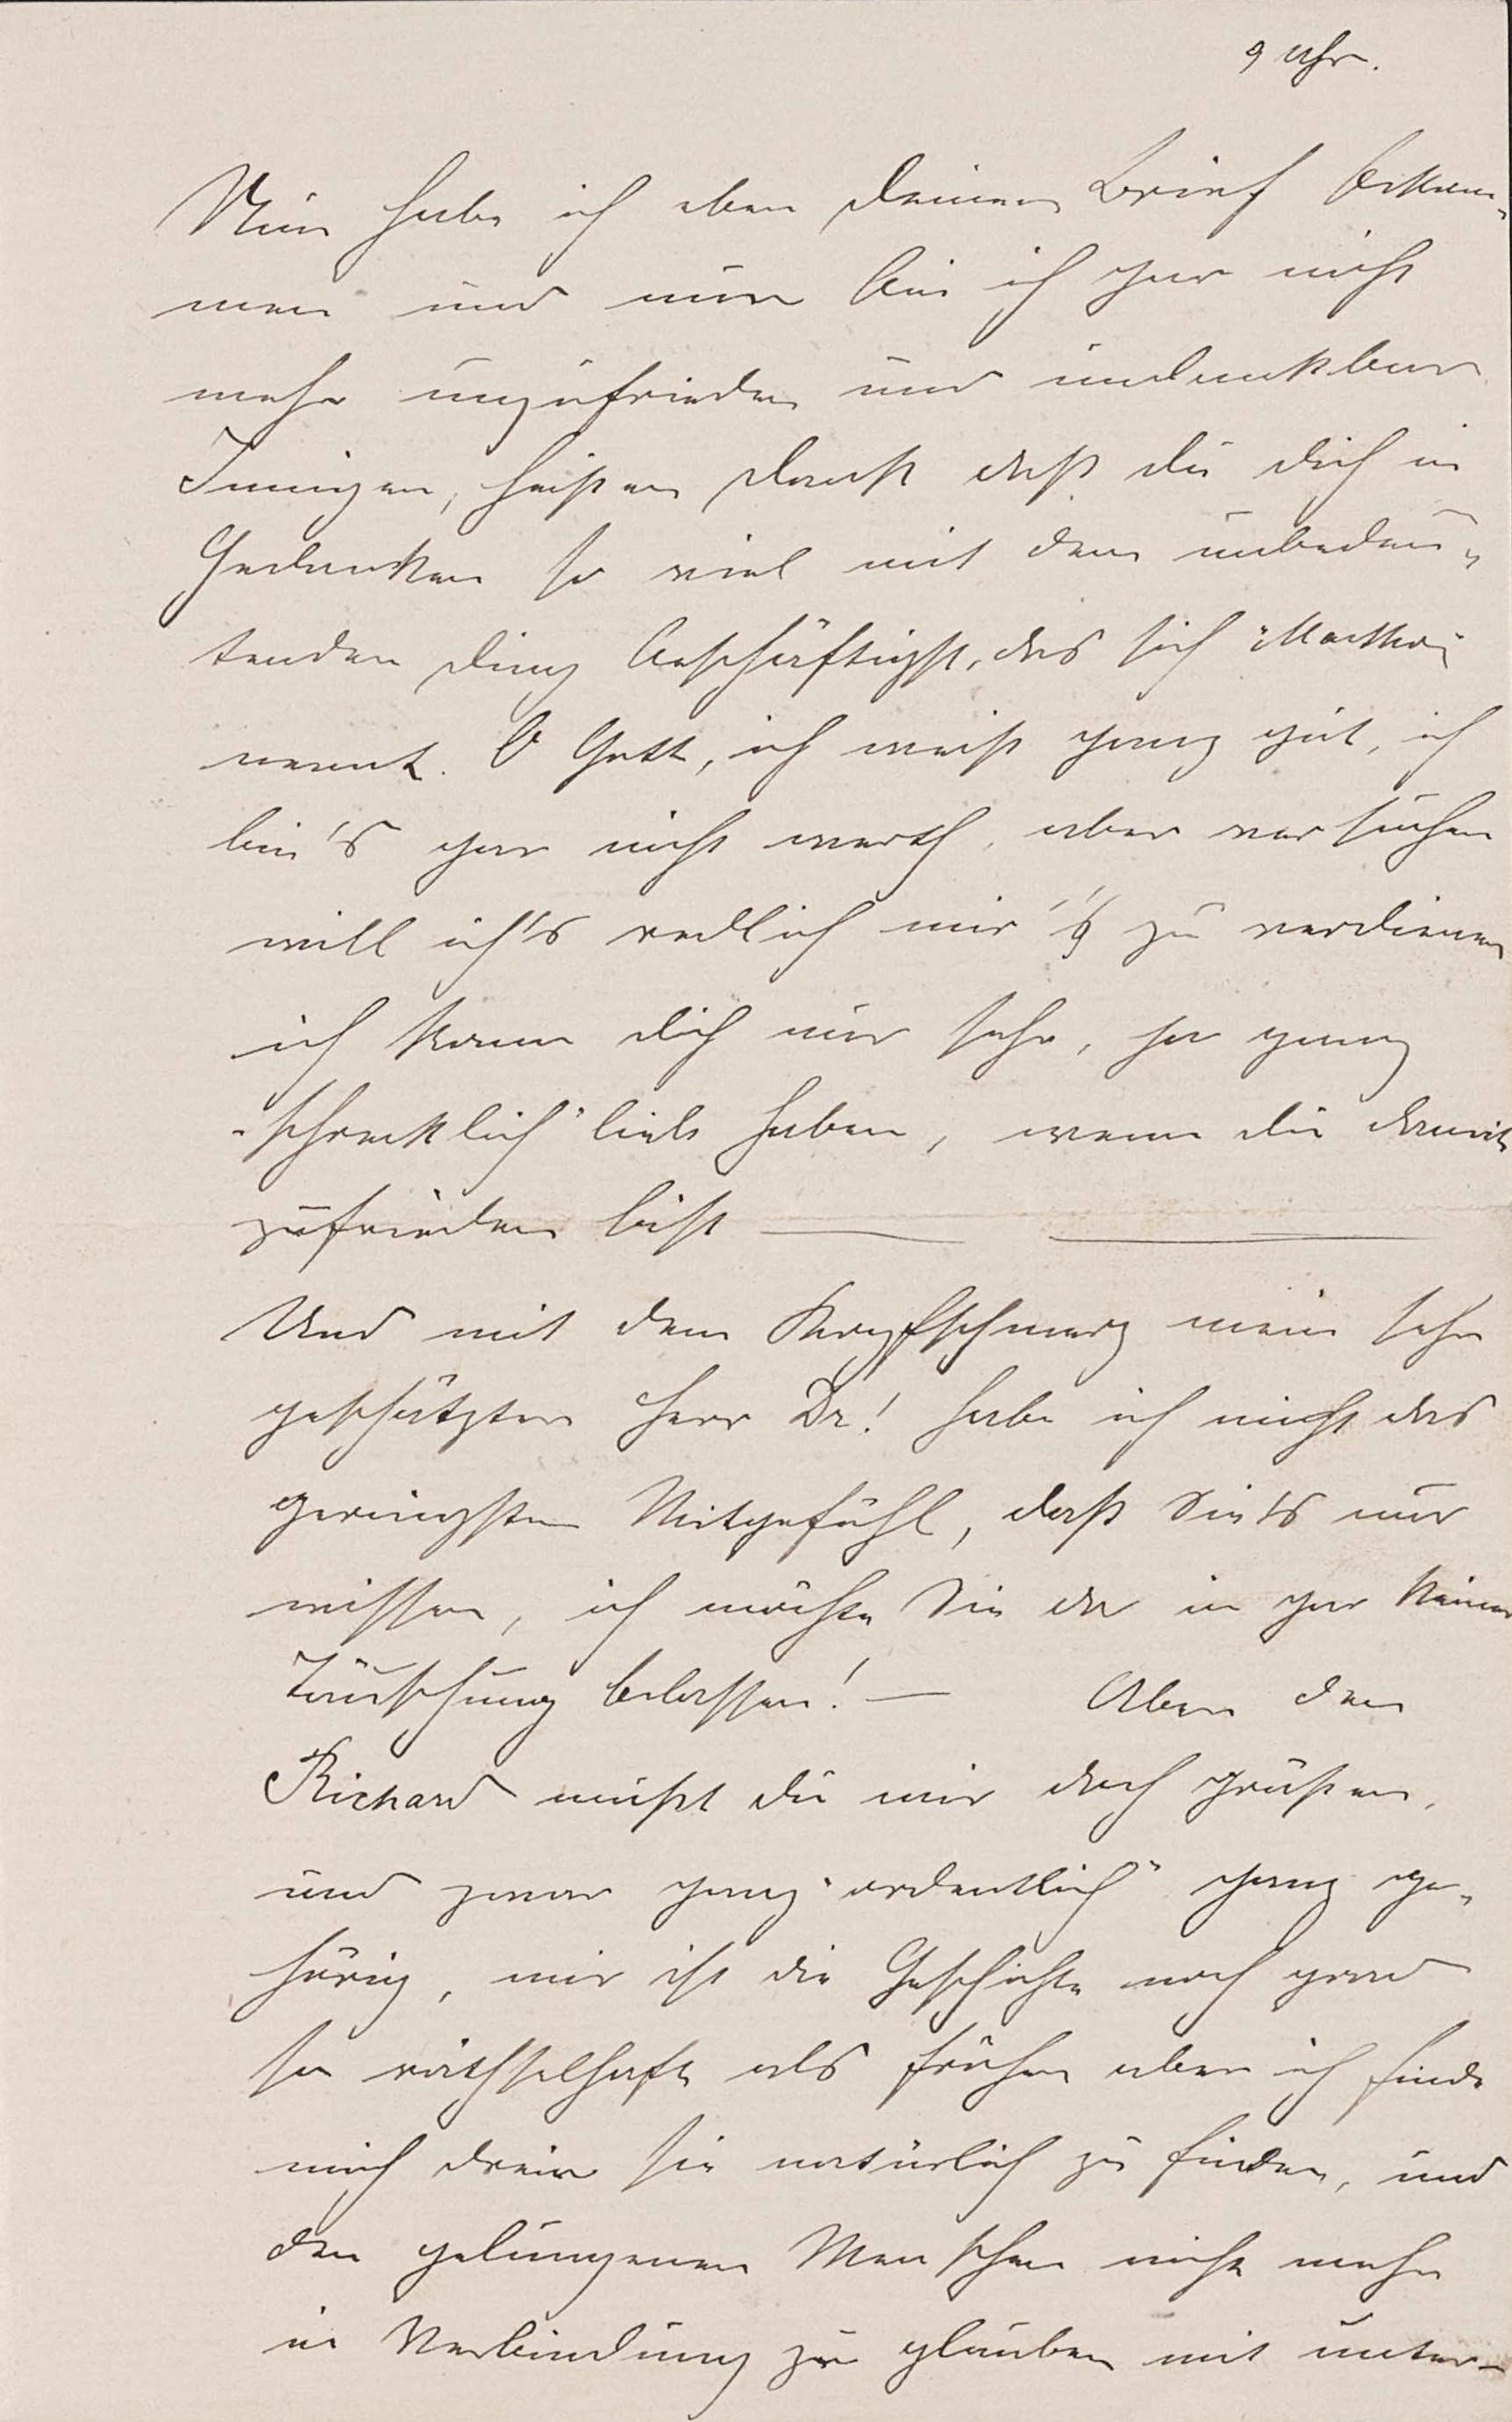 9 Uhr.
Nun habe ich eben deinen Brief bekom-
men und nun bin ich gar nicht
mehr unzufrieden und undankbar
Innigen, heißen Dank daß du dich in
Gedanken so viel mit dem unbedeu-
tenden Ding beschäftigst, das sich "Martha"
nennt. O Gott, ich weiß ganz gut, ich
bin's gar nicht werth, aber versuchen
will ich's redlich mir's zu verdienen
ich kann dich nur sehr, sehr ganz
"schrecklich" lieb haben, wenn du damit
zufrieden bist
Und mit dem Kopfschmerz mein sehr
geschätzter Herr Dr! habe ich nicht das
geringste Mitgefühl, daß Sie's nur
wissen, ich möchte Sie da in gar keiner
Täuschung belassen! — Aber den
Richard mußt du mir doch grüßen,
und zwar ganz "ordentlich" ganz ge-
hörig, mir ist die Geschichte noch grad
so räthselhaft als früher aber ich finde
mich drein sie natürlich zu finden, und
den gelungenen Menschen nicht mehr
in Verbindung zu glauben mit unter-